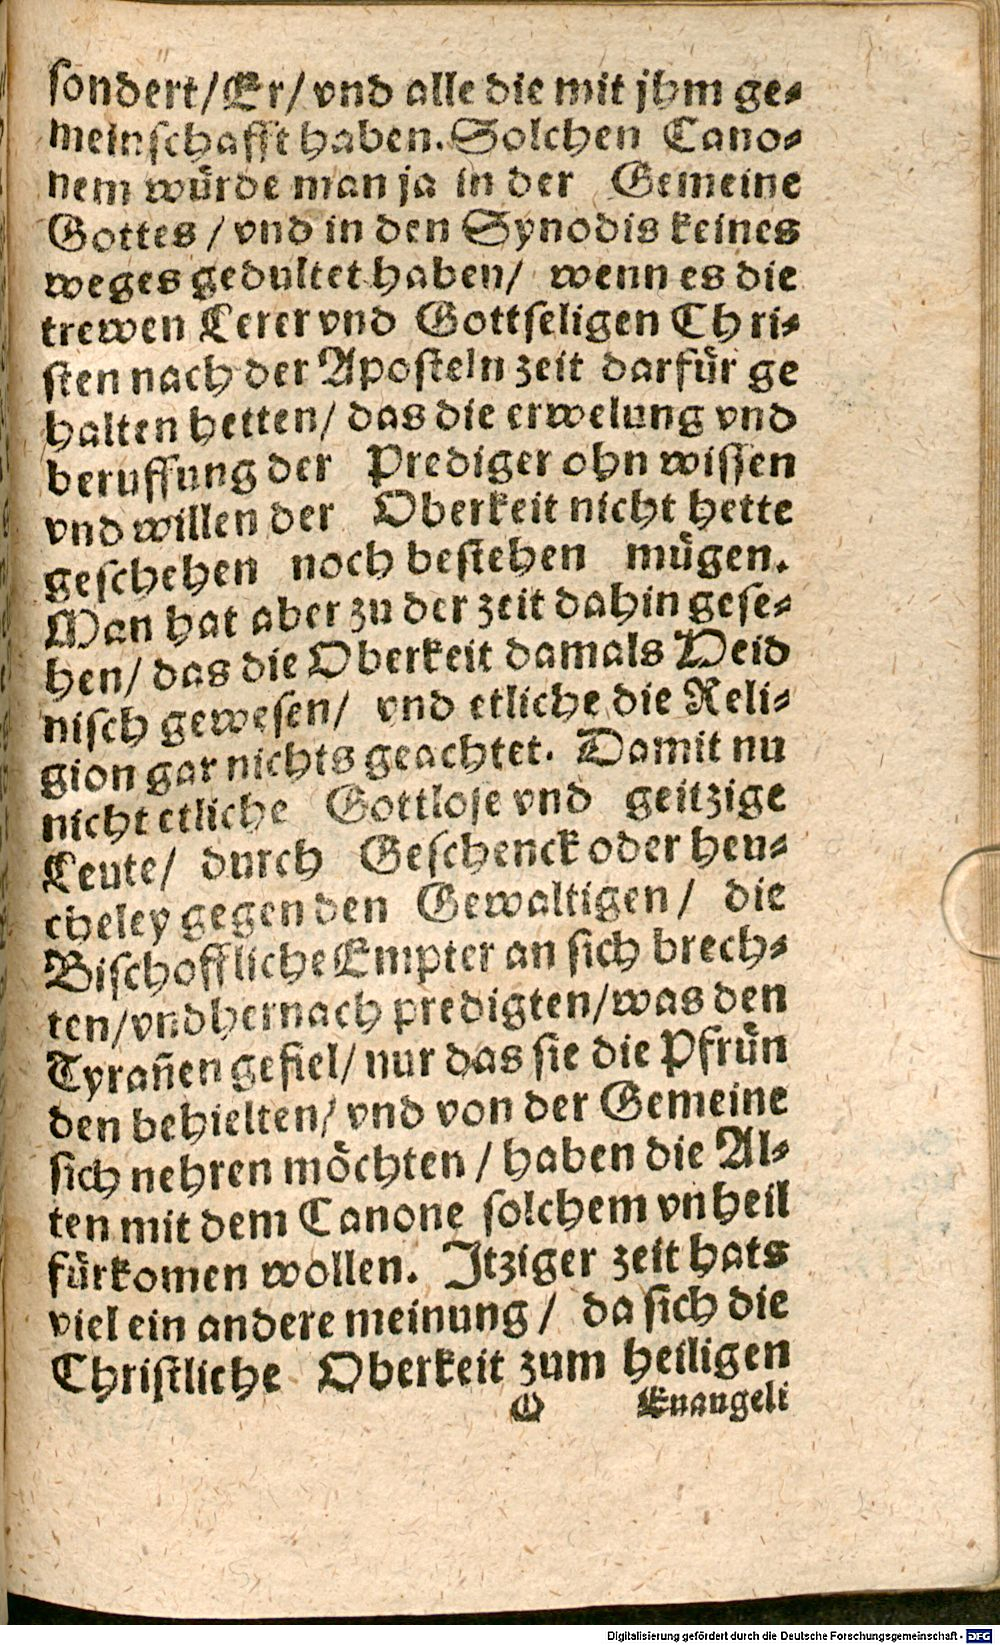 ſondert/Er/ vnd alle die mit jhm ge⸗
meinſchafft haben. Solchen Cano⸗
nem würde man ja in der Gemeine
Gottes / vnd in den Synodis keines
weges gedultet haben/ wenn es die
trewen Lerer vnd Gottſeligen Chri⸗
ſten nach der Apoſteln zeit darfür ge
halten hetten/ das die erwelung vnd
beruffung der Prediger ohn wiſſen
vnd willen der Oberkeit nicht hette
geſchehen noch beſtehen mügen.
Man hat aber zu der zeit dahin geſe⸗
hen/ das die Oberkeit damals Heid
niſch geweſen/ vnd etliche die Reli⸗
gion gar nichts geachtet. Damit nu
nicht etliche Gottloſe vnd geitzige
Leute/ durch Geſchenck oder heu⸗
cheley gegen den Gewaltigen/ die
Biſchoffliche Empter an ſich brech⸗
ten/vnd hernach predigten/was den
Tyrañen gefiel/ nur das ſie die Pfrün
den behielten/ vnd von der Gemeine
ſich nehren möchten / haben die Al⸗
ten mit dem Canone ſolchem vnheil
fürkomen wollen. Itziger zeit hats
viel ein andere meinung / da ſich die
Chriſtliche Oberkeit zum heiligen
O Euangeli
Digitalisierung gefördert durch die Deutsche Forschungsgemeinschaft - DFG